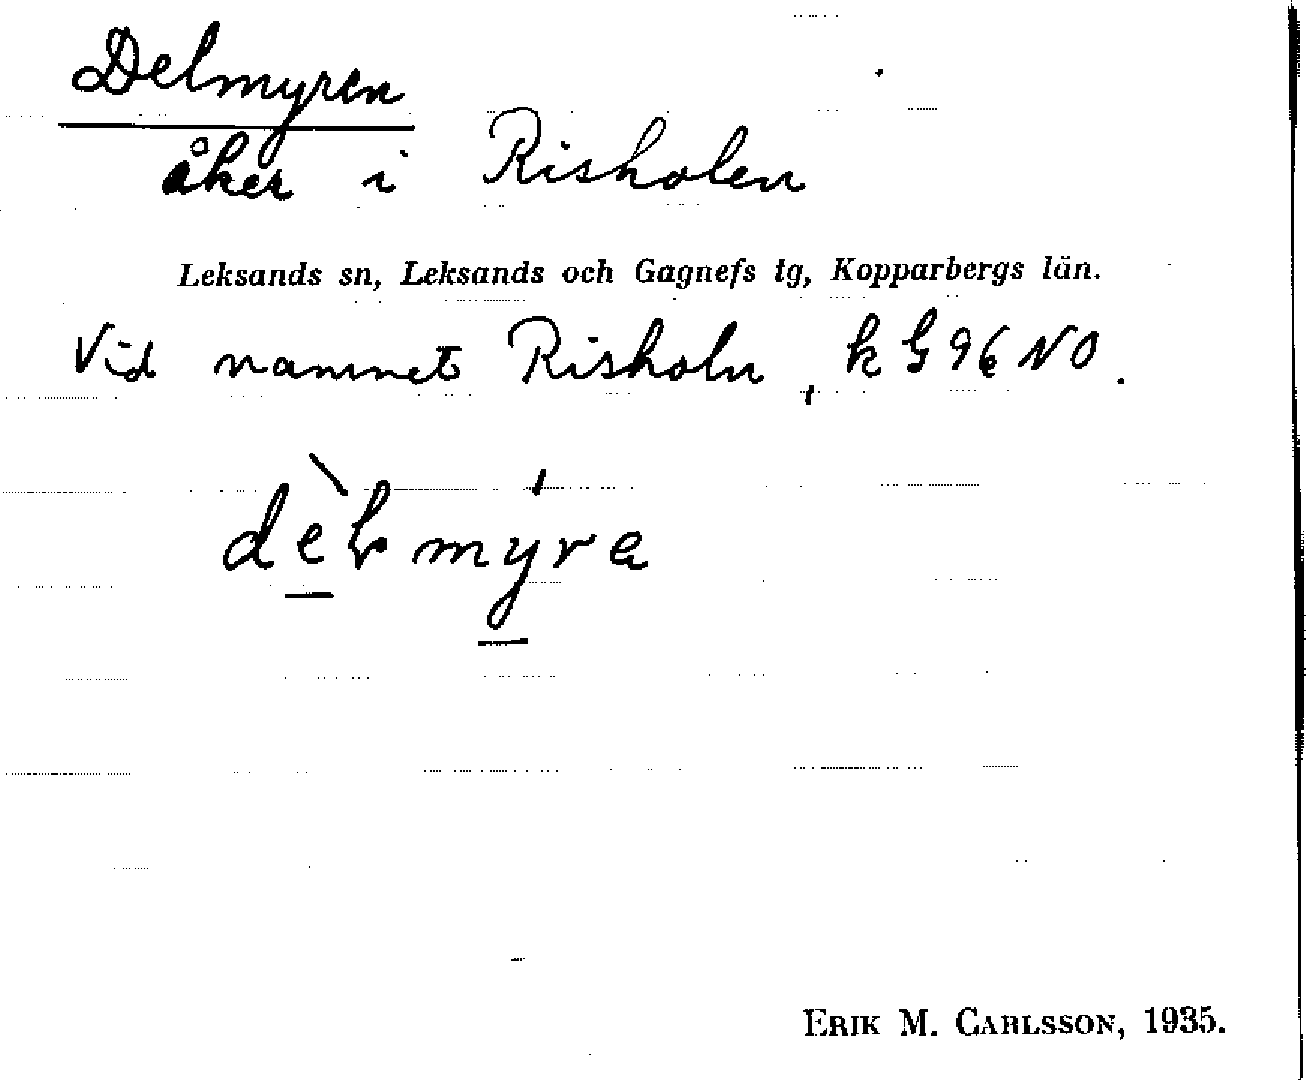 Delmyren
åker i Risholen
Leksands sn, Leksands och Gagnefs tg, Kopparbergs län.
Vid namnet Risholn, k G 96 NO.
dèlmýra
ERIK M. CARLSSON, 1935.